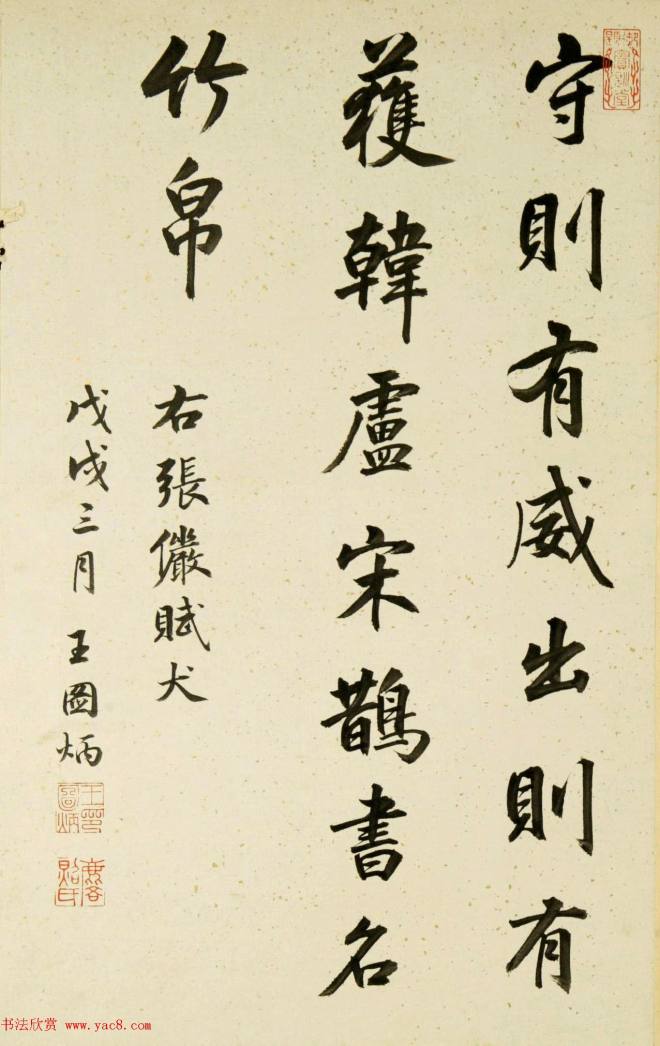 守則有威出則有
獲韓盧宋鵲書名
竹帛
右張儼賦犬
戊戌三月王圖炳
王圖炳
书法欣赏 www.yac8.com